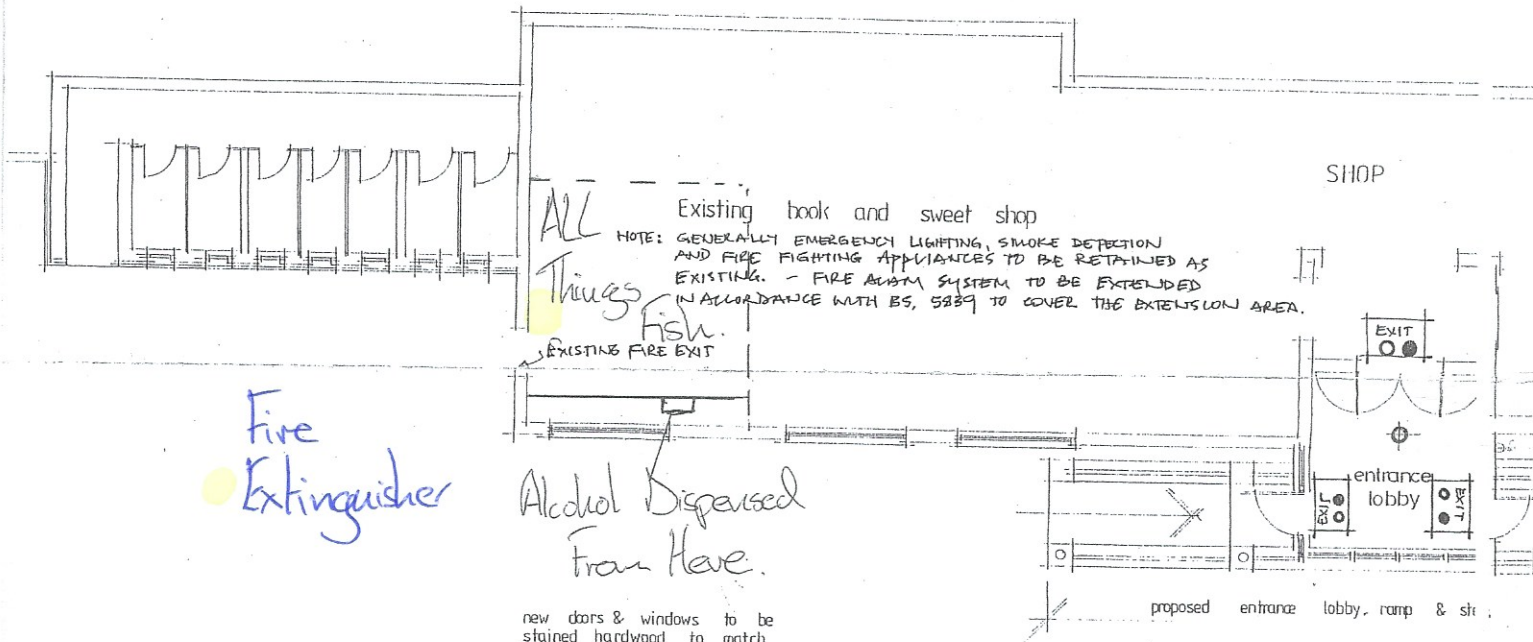 SHOP
Existing book and sweet shop
NOTE: GENERALLY EMERGENCY LIGHTING, SMOKE DETECTION
AND FIRE FIGHTING APPLIANCES TO BE RETAINED AS
EXISTING. - FIRE ALAM SYSTEM TO BE EXTENDED
IN ACCORDANCE WITH BS, 5839 TO COVER THE EXTENSION AREA.
ALL
Things
Fish.
EXISTING FIRE EXIT
EXIT
Fire
Extinguisher
Alcohol Dispensed
From Here.
entrance
lobby
EXIT
EXIT
new doors & windows to be
stained hardwood to match
proposed entrance lobby, ramp &